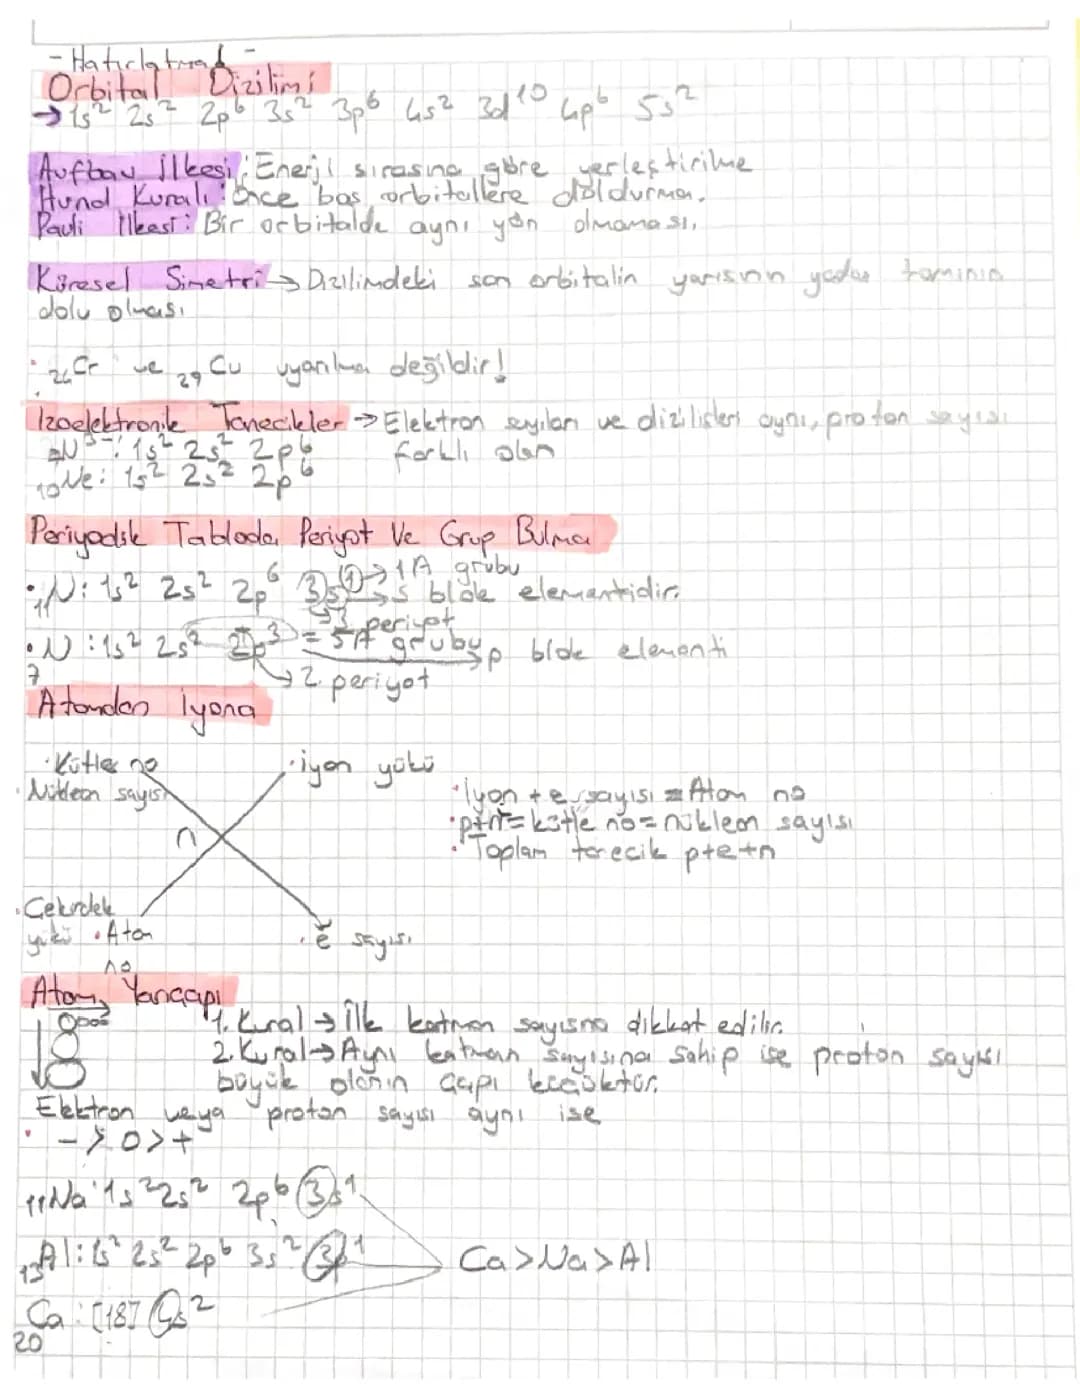 - Hatırlatma -
Orbital Dizilimi
→ 1s² 2s² 2p⁶ 3s² 3p⁶ 4s² 3d¹⁰ 4p⁶ 5s²
Aufbau İlkesi: Enerji sırasına göre yerleştirilme
Hund Kuralı: Önce boş orbitallere doldurma.
Pauli İlkesi: Bir orbitalde aynı yön olmaması.
Küresel Simetri → Dizilimdeki son orbitalin yarısının yada tamının
dolu olması
· ₂₄Cr ve ₂₉Cu uyarılma değildir!
İzoelektronik Tanecikler → Elektron sayıları ve dizilişleri aynı, proton sayısı
farklı olan
₇N³⁻: 1s² 2s² 2p⁶
₁₀Ne: 1s² 2s² 2p⁶
Periyodik Tabloda Periyot Ve Grup Bulma
· ₁₁N: 1s² 2s² 2p⁶ 3s¹ → 1A grubu
→ s blok elementidir.
→ 3. periyot
· ₇N: 1s² 2s² 2p³ = 5A grubu → p blok elementi
→ 2. periyot
Atomdan İyona
· Kütle no
· Nükleon sayısı
· iyon yükü
n
· Çekirdek
yükü · Atom
no
· e⁻ sayısı
· İyon + e⁻ sayısı = Atom no
· p+n = kütle no = nükleon sayısı
· Toplam tanecik p+e+n
Atom Yarıçapı
1. Kural → İlk katman sayısına dikkat edilir.
2. Kural → Aynı katman sayısına sahip ise proton sayısı
büyük olanın çapı küçüktür.
Elektron veya proton sayısı aynı ise
· - > 0 > +
₁₁Na: 1s² 2s² 2p⁶ 3s¹
₁₃Al: 1s² 2s² 2p⁶ 3s² 3p¹
Ca > Na > Al
₂₀Ca: [18] 4s²